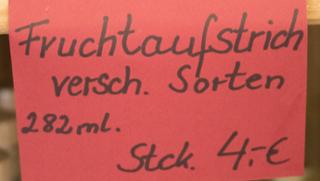 Fruchtaufstrich
versch. Sorten
282ml.
Stck. 4,-€